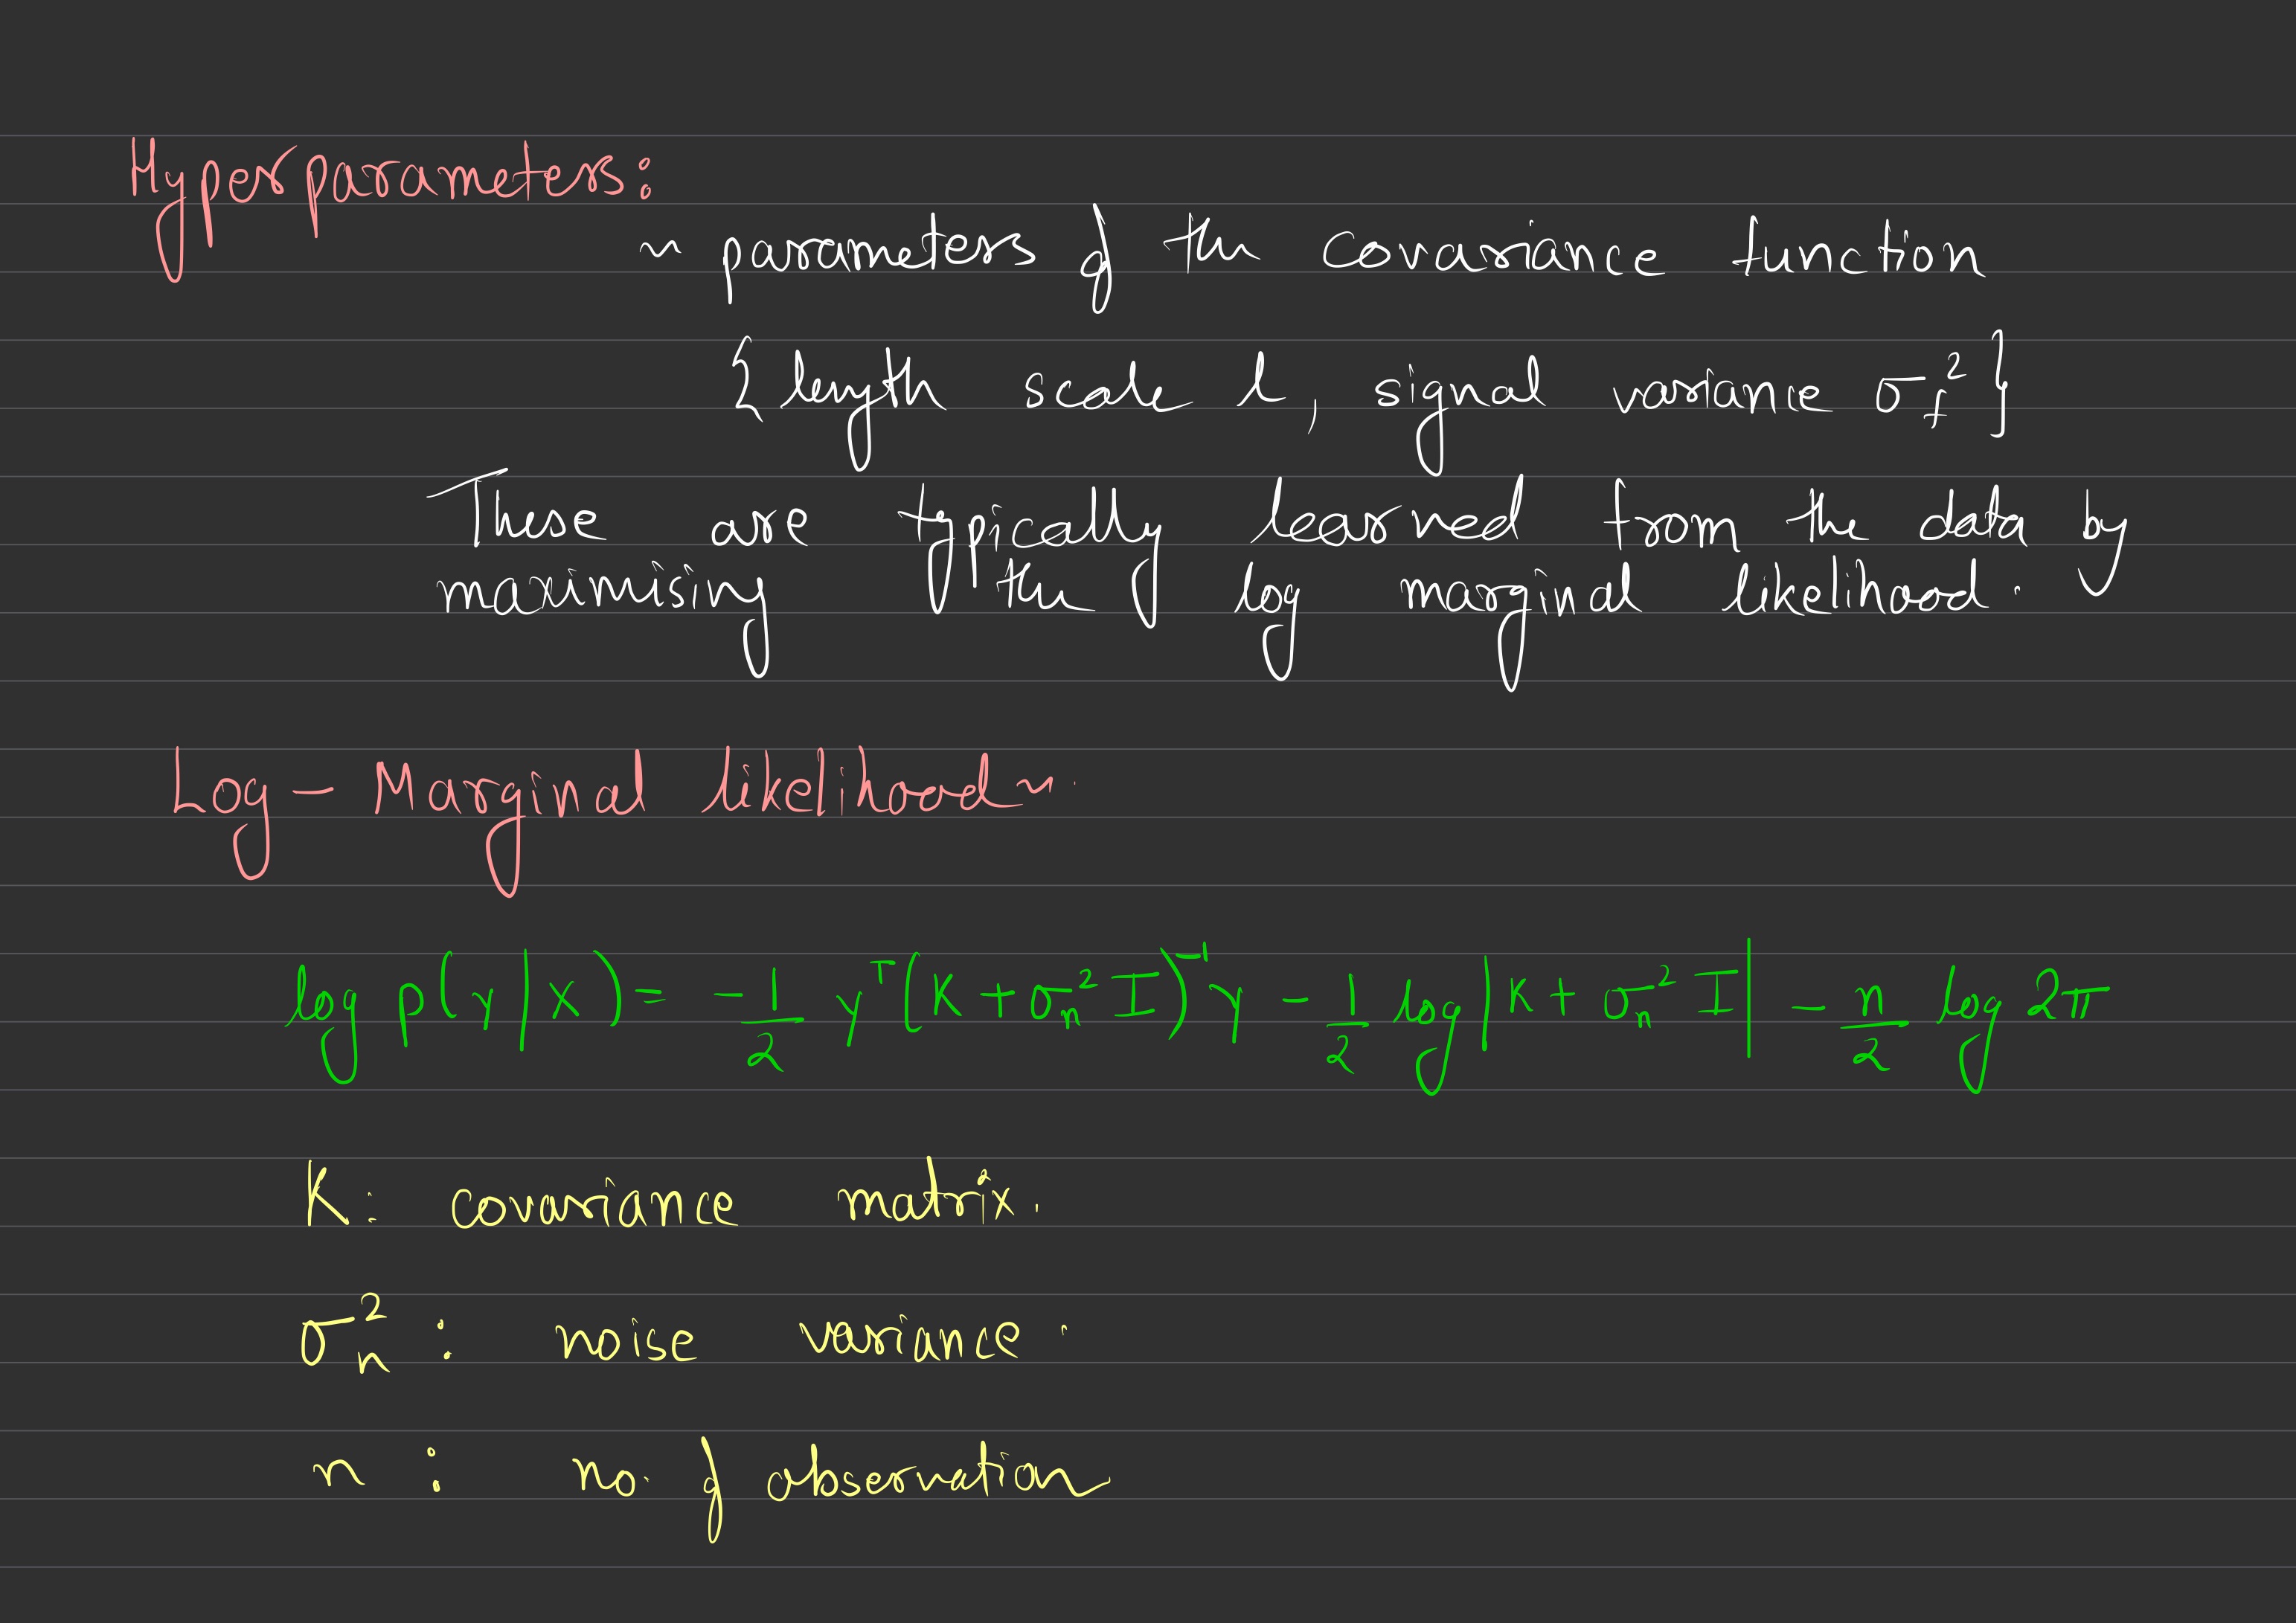 Hyperparameters:
~ parameters of the covariance function
{length scale l, signal variance σ_f²}
These are typically learned from the data by
maximising the log marginal likelihood.
Log - Marginal likelihood ~.
log p(y|x) = -1/2 yᵀ(K + σ_n² I)⁻¹ y - 1/2 log|K + σ_n² I| - n/2 log 2π
K: covariance matrix.
σ_n² : noise variance.
n : no. of observation